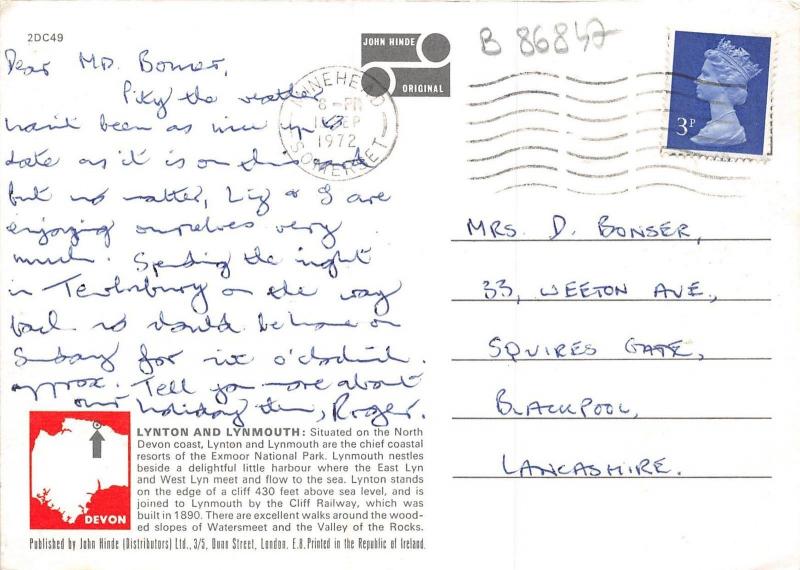 2DC49
JOHN HINDE
ORIGINAL
B 86847
MINEHEAD
8-PM
SEP
1972
SOMERSET
3P
Dear Mrs. Bonser,
Pity the weather
hasn't been as nice up to
date as it is on this card
but no matter, Liz & I are
enjoying ourselves very
much. Spending the night
in Tewkesbury on the way
back so should be home on
Sunday for six o'clockish.
approx. Tell you more about
our holiday then, Roger.
MRS. D. BONSER,
33, WEETON AVE.,
SQUIRES GATE,
BLACKPOOL,
LANCASHIRE.
DEVON
LYNTON AND LYNMOUTH: Situated on the North
Devon coast, Lynton and Lynmouth are the chief coastal
resorts of the Exmoor National Park. Lynmouth nestles
beside a delightful little harbour where the East Lyn
and West Lyn meet and flow to the sea. Lynton stands
on the edge of a cliff 430 feet above sea level, and is
joined to Lynmouth by the Cliff Railway, which was
built in 1890. There are excellent walks around the wood-
ed slopes of Watersmeet and the Valley of the Rocks.
Published by John Hinde (Distributors) Ltd., 3/5, Dunn Street, London, E.8. Printed in the Republic of Ireland.